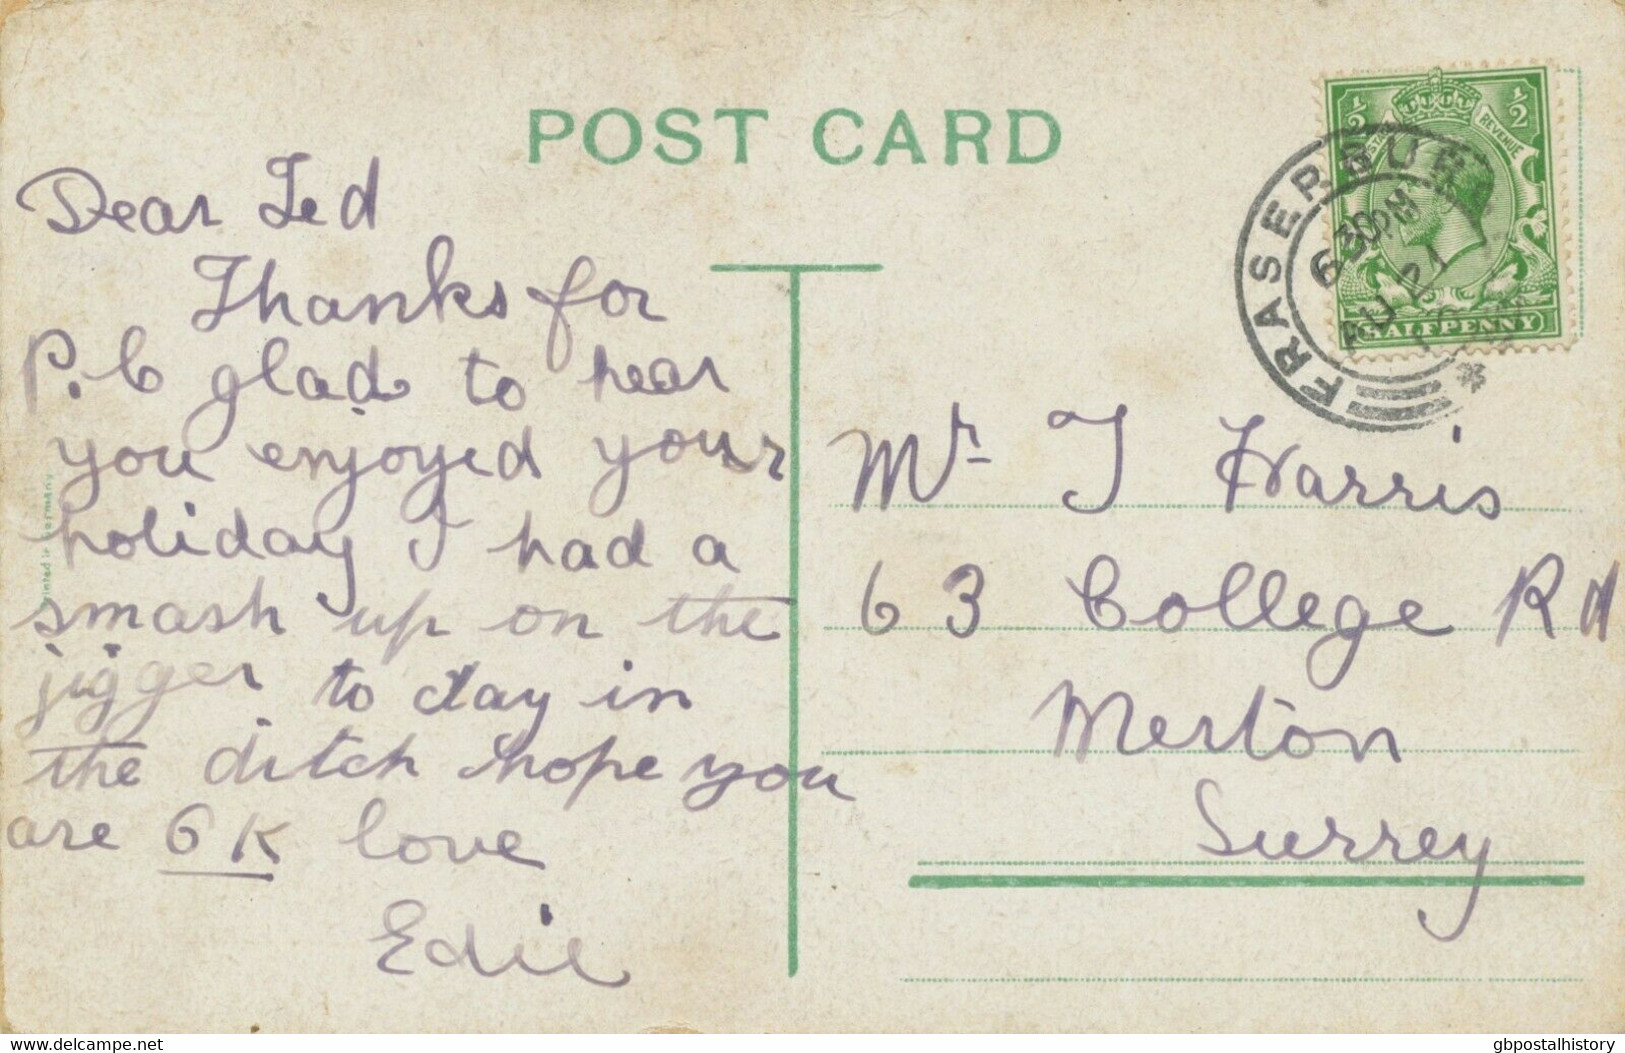 POST CARD
Dear Ted
Thanks for
P.C glad to hear
you enjoyed your
holiday I had a
smash up on the
jigger to day in
the ditch hope you
are O K love
Edie
Mr T Harris
63 College Rd
Merton
Surrey
½ ½
REVENUE
HALFPENNY
FRASERBUR
6 30PM
AU 21
delcampe.net
gbpostalhistory